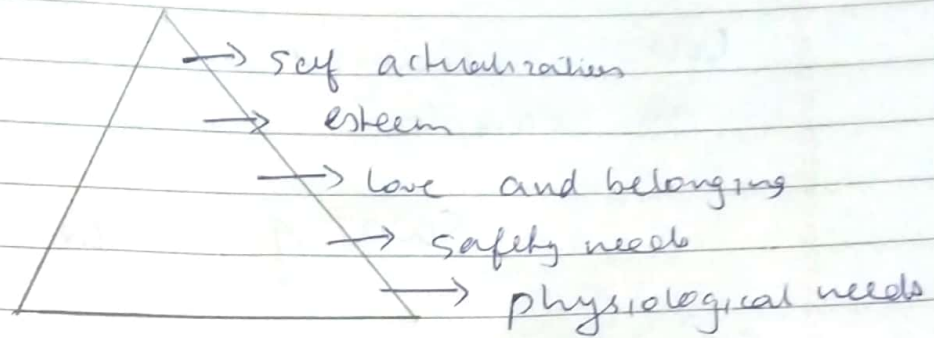 self actualization
esteem
love and belonging
safety needs
physiological needs